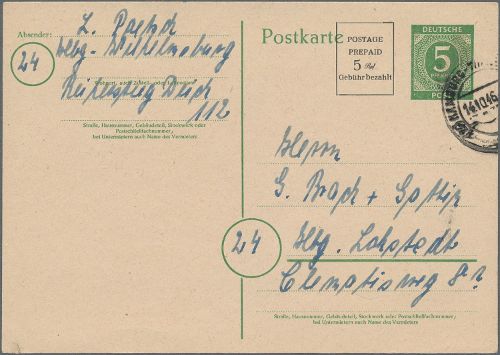 Absender:
24
Hbg-Wilhelmsburg
112
Straße, Hausnummer, Gebäudeteil, Stockwerk oder
Postschließfachnummer;
bei Untermietern auch Name des Vermieters
Postkarte
POSTAGE
PREPAID
5 Pf
Gebühr bezahlt
DEUTSCHE
5
PFENNIG
POST
HAMBURG
14.10.46
Herrn
G. Brach + Gattin
24
Hbg. Lokstedt
Clematisweg 8
Straße, Hausnummer, Gebäudeteil, Stockwerk oder Postschließfachnummer;
bei Untermietern auch Name des Vermieters